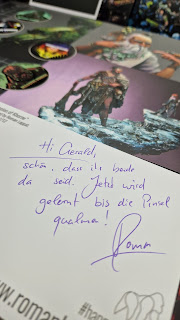 Hi Gerald,
schön, dass ihr beide
da seid. Jetzt wird
gelernt bis die Pinsel
qualmen!
Roman
www.roman